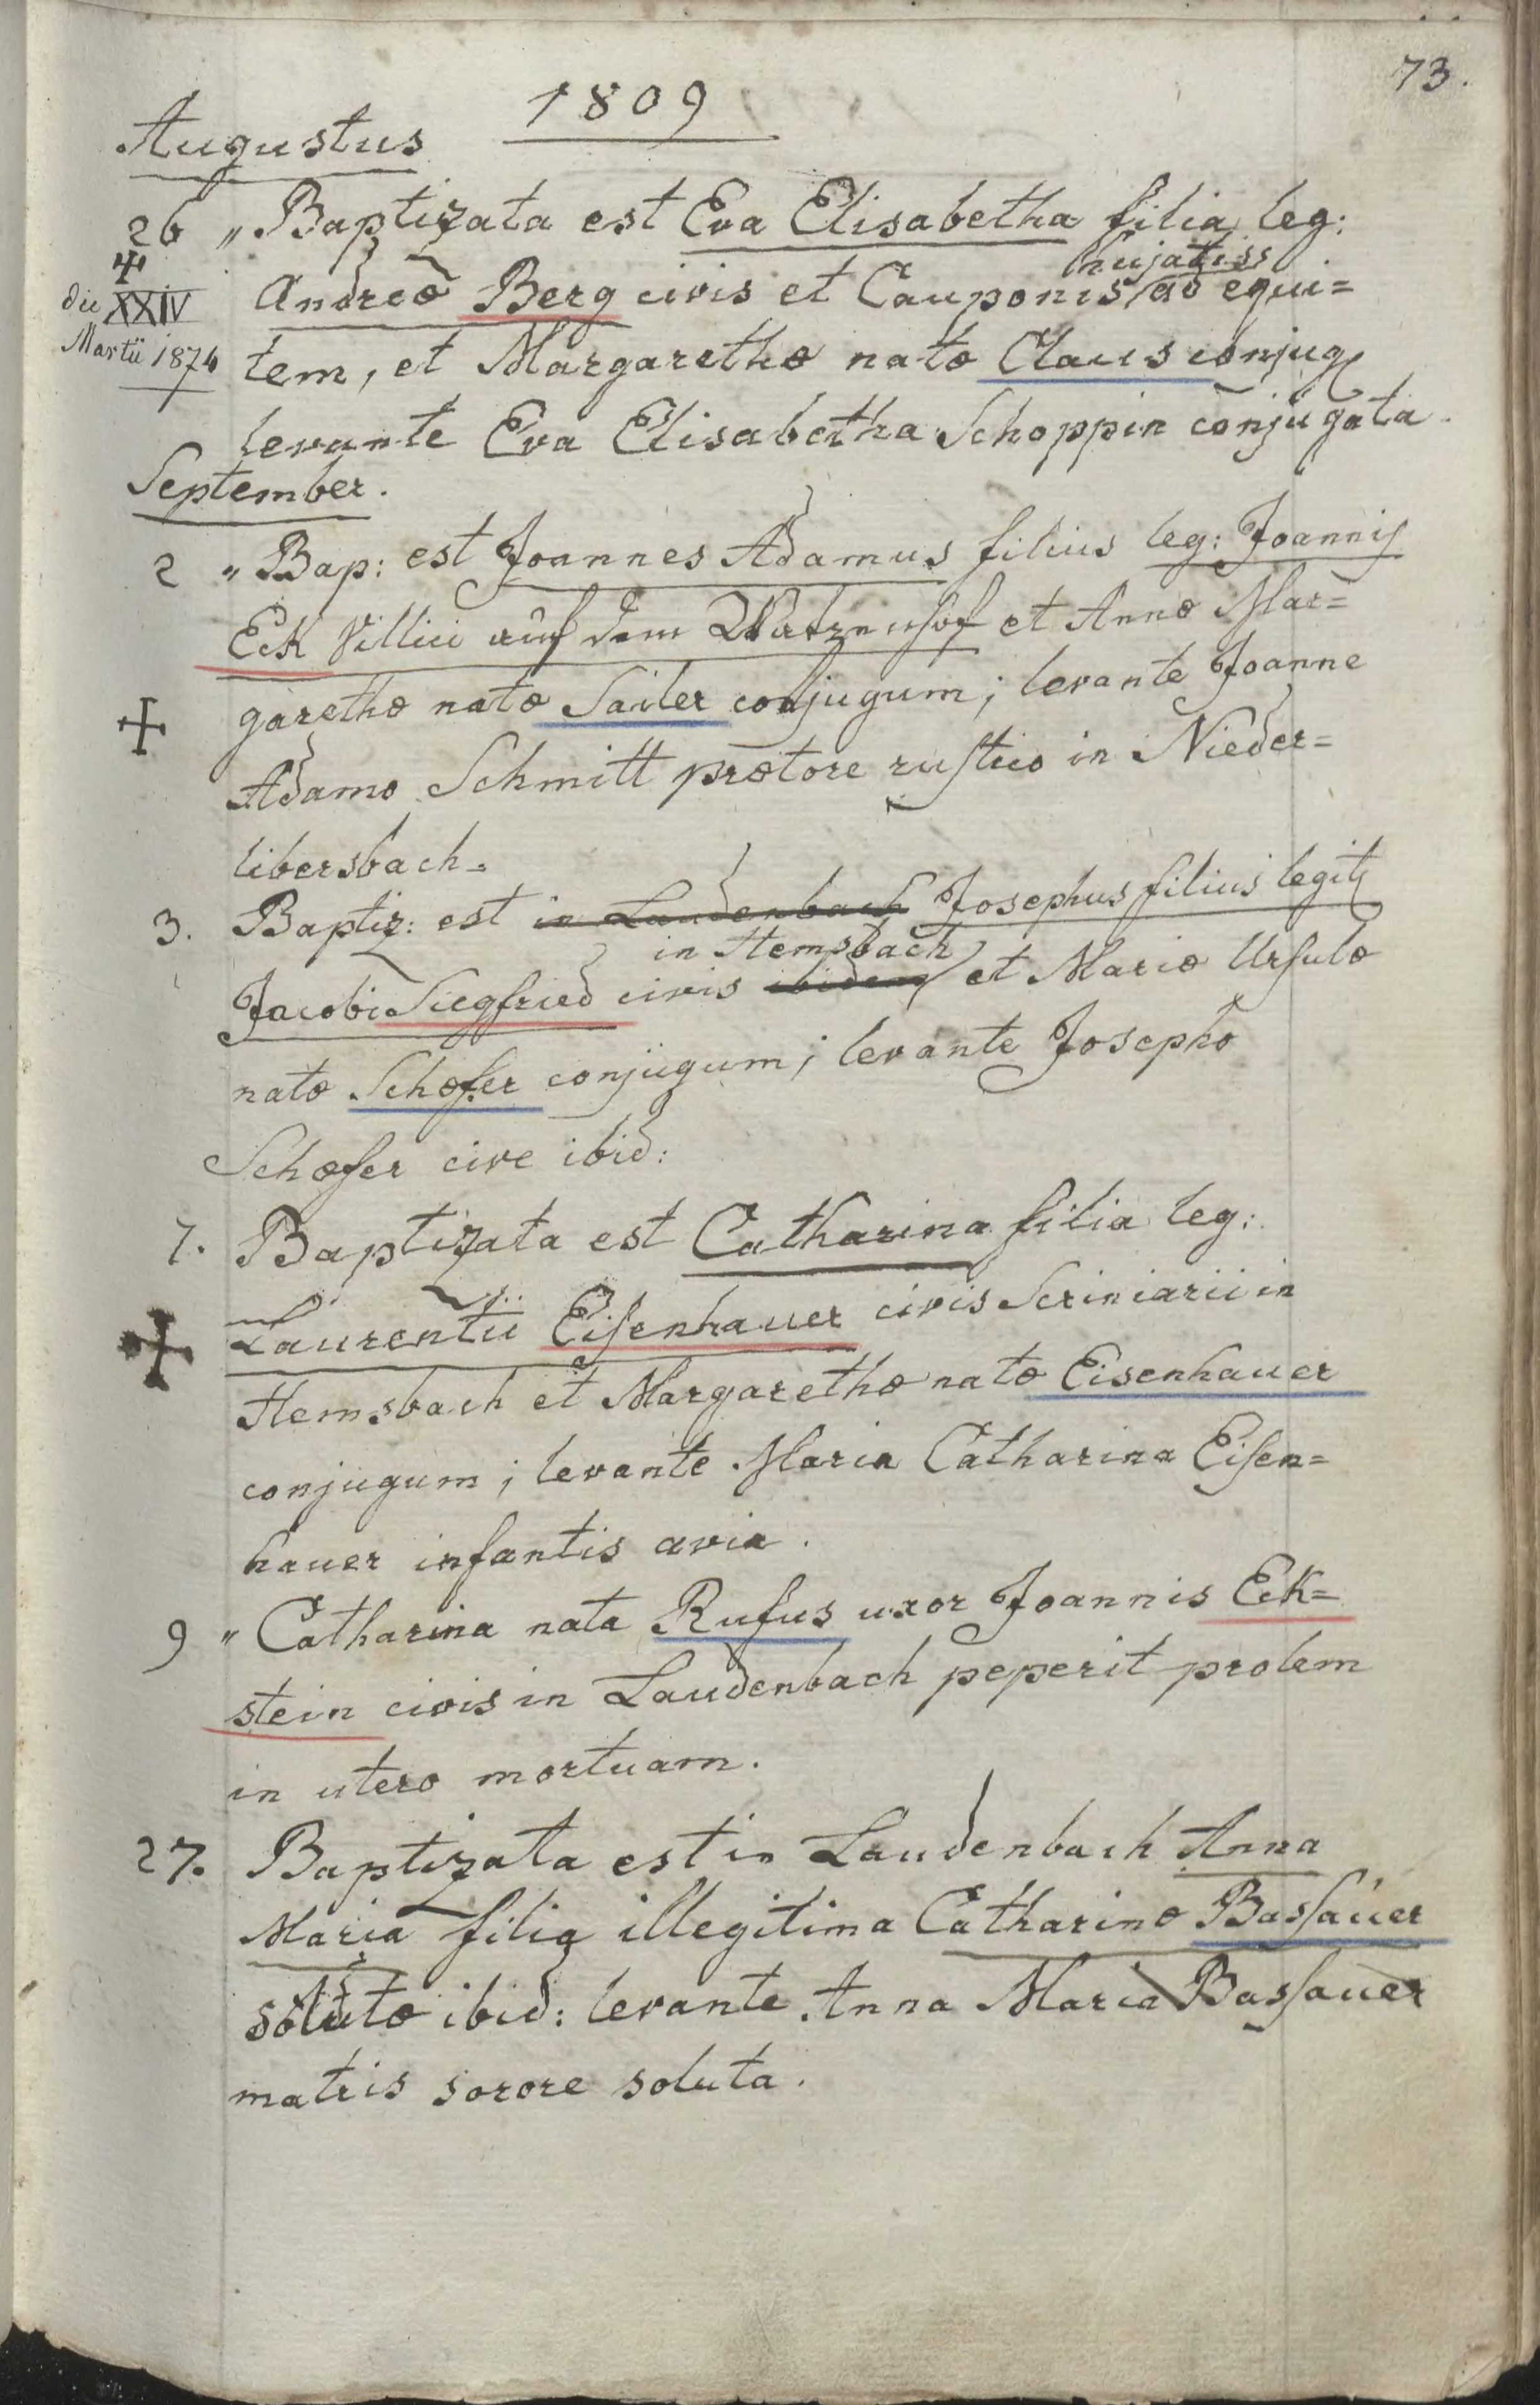 73.
1809
Augustus
26 „ Baptizata est Eva Elisabetha filia leg:
Andreæ Berg civis et Cauponis hujatiss ad equi=
✝ die XXIV Martii 1874
tem, et Margarethæ natæ Claus conjug
levante Eva Elisabetha Schoppin conjugata.
September.
2 „ Bap: est Joannes Adamus filius leg: Joannis
Eck Villici auf dem Watzenhof et Annæ Mar=
✝ garethæ natæ Sailer conjugum; levante Joanne
Adamo Schmitt prætore rustico in Nieder=
libersbach.
3. Baptiz: est in Laudenbach Josephus filius legit
in Hemsbach
Jacobi Siegfried civis ibidem et Mariæ Ursulæ
natæ Schæfer conjugum; levante Josepho
Schæfer cive ibid:
7. Baptizata est Catharina filia leg:
✝ Laurentii Eisenhauer civis Scriniarii in
Hemsbach et Margarethæ natæ Eisenhauer
conjugum; levante Maria Catharina Eisen=
hauer infantis avia.
9 „ Catharina nata Rufus uxor Joannis Eck=
stein civis in Laudenbach peperit prolem
in utero mortuam.
27. Baptizata est in Laudenbach Anna
Maria filia illegitima Catharinæ Bassauer
solutæ ibid: levante Anna Maria Bassauer
matris sorore soluta.